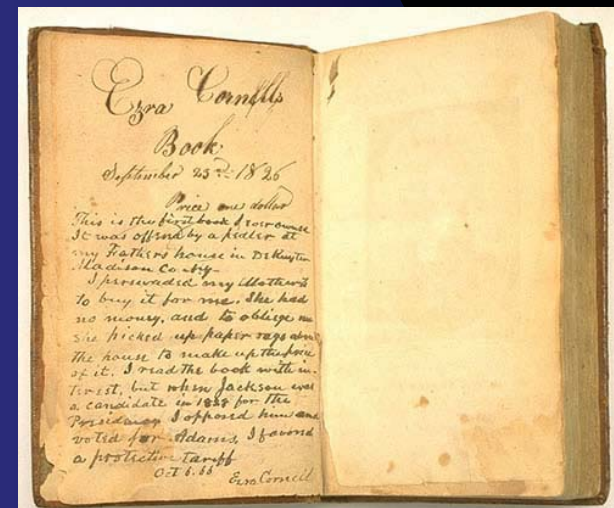 Ezra Cornell's
Book
September 23rd 1826
Price one dollar
This is the first book I ever owned
It was offered by a pedler at
my Fathers house in DeRuyter
Madison Co NY
I perswaded my Mother
to buy it for me. She had
no money, and to oblige me
she picked up paper rags about
the house to make up the price
of it. I read the book with in-
terest, but when Jackson was
a candidate in 1828 for the
Presidency I opposed him and
voted for Adams, I favored
a protective tariff
Oct 6. 66
Ezra Cornell